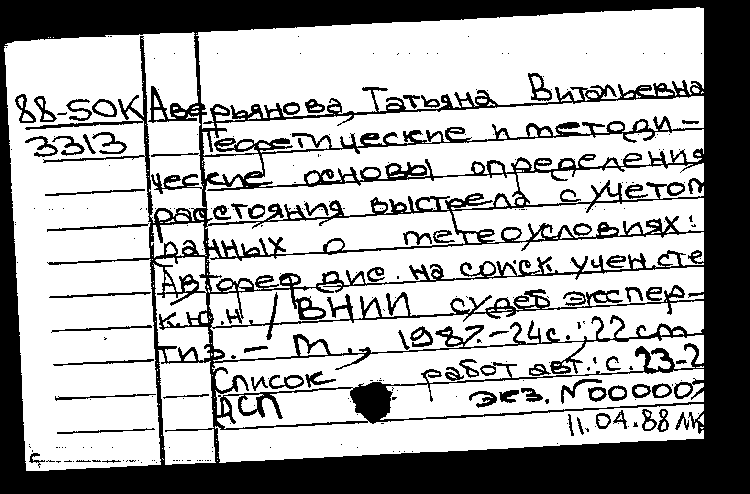 88-50К Аверьянова, Татьяна Витальевна
3313 Теоретические и методи-
ческие основы определения
расстояния выстрела с учетом
данных о метеоусловиях:
Автореф. дис. на соиск. учен. сте
к.ю.н. / ВНИИ судеб экспер-
тиз. – М., 1987. – 24 с.; 22 см.
Список работ авт.: с. 23-2
ДСП экз. N 000007
11.04.88